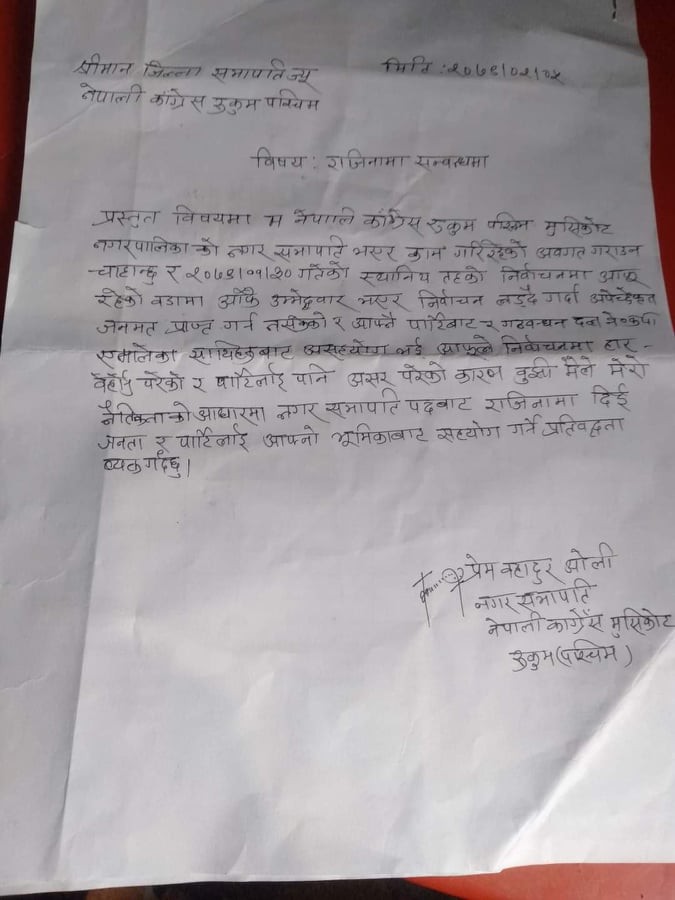 श्रीमान जिल्ला सभापतिज्यू
मिति : २०७९/०२/०५
नेपाली कांग्रेस रुकुम पश्चिम
विषय : राजिनामा सम्वन्धमा
प्रस्तुत विषयमा म नेपाली कांग्रेस रुकुम पश्चिम मुसिकोट
नगरपालिका को नगर सभापति भएर काम गरिरहेको अवगत गराउन
चाहान्छु र २०७९।०१।३० गतेको स्थानिय तहको निर्वाचनमा आफू
रहेको वडामा आँफै उम्मेद्वार भएर निर्वाचन लड्दै गर्दा अपेच्छेकृत
जनमत प्राप्त गर्न नसकेको र आफ्नै पार्टिबाट र गठवन्धन दल
एमालेका साथिहरुबाट असहयोग भई आफूले निर्वाचनमा हार-
वेहोर्नु परेको र पार्टिलाई पनि असर परेको कारण वुझी मैले मेरो
नैतिकता को आधारमा नगर सभापति पदबाट राजिनामा दिई
जनता र पार्टिलाई आफ्नो भूमिकाबाट सहयोग गर्ने प्रतिवद्धता
व्यक्त गर्दछु।
प्रेम वहादुर ओली
नगर सभापति
नेपाली कांग्रेस मुसिकोट
रुकुम (पश्चिम)